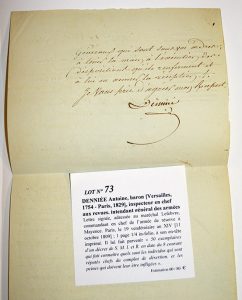 Généraux qui sont sous vos ordres,
à tenir la main à l'exécution des
dispositions qu'ils renferment et
à lui en donner la réception.
Je vous prie d'agréer mon Respect.
Denniée
LOT N° 73
DENNIÉE Antoine, baron [Versailles,
1754 - Paris, 1829], inspecteur en chef
aux revues, intendant général des armées
Lettre signée, adressée au maréchal Lefebvre,
commandant en chef de l'armée de réserve à
Mayence. Paris, le 19 vendémiaire an XIV [11
octobre 1805] ; 1 page 1/4 in-folio, à son en-tête
imprimé. Il lui fait parvenir « 50 exemplaires
d'un décret de S. M. I. et R. en date du 8 courant
qui fait connaître quels sont les individus qui sont
réputés chefs de complot de désertion, et les
peines qui doivent leur être infligées ».
Estimation 60 / 80 €